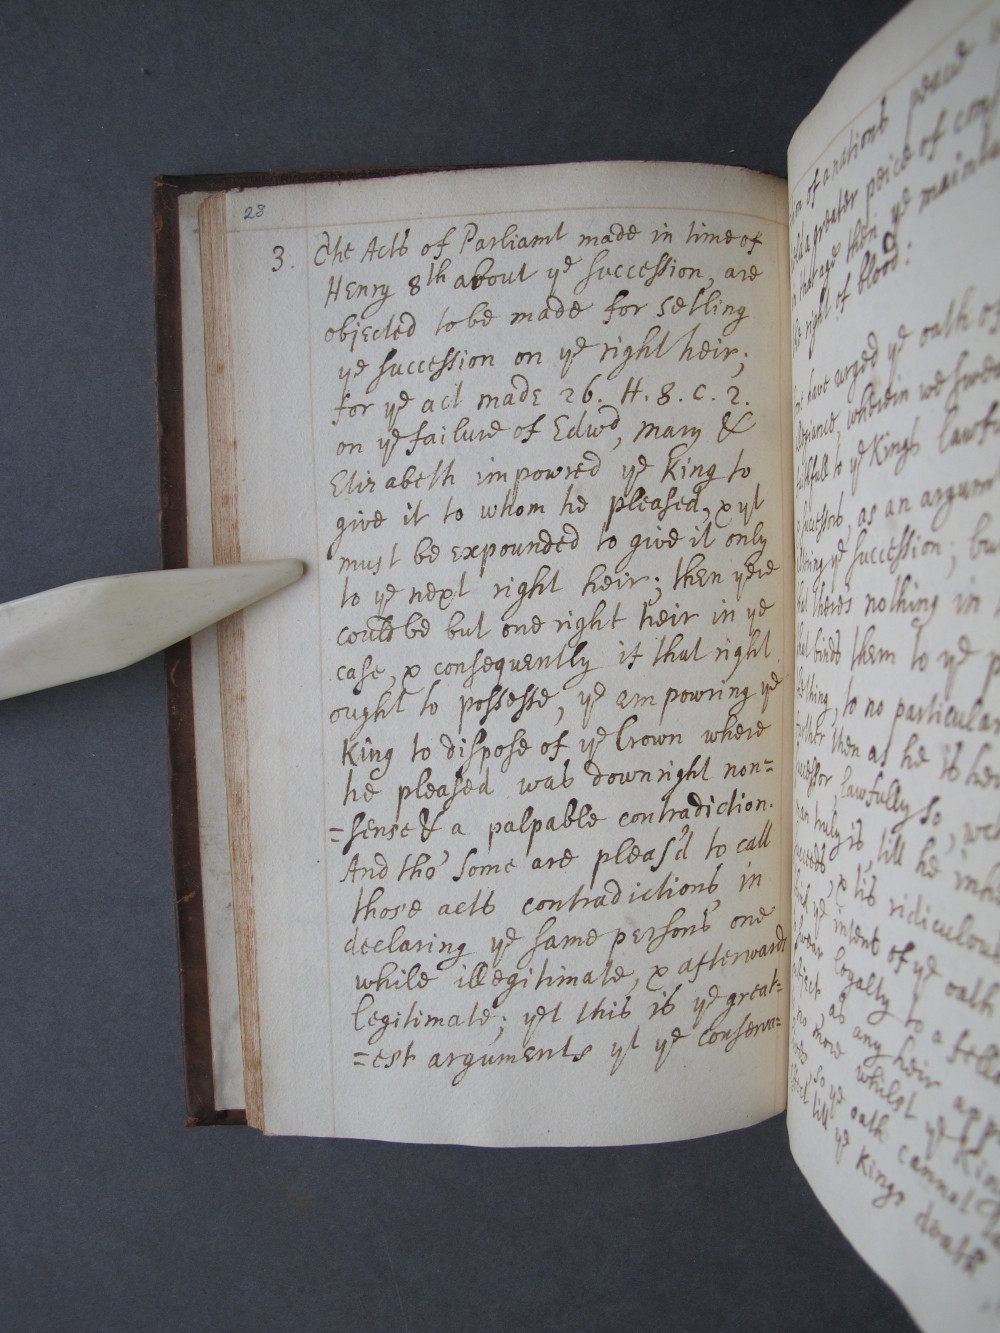 28
3. The Acts of Parliamt made in time of
Henry 8th about ye succession, are
objected to be made for setling
ye succession on ye right heir;
for ye act made 26. H. 8. C. 2.
on ye failure of Edwd, Mary &
Elizabeth impowred ye King to
give it to whom he pleased, & yt
must be expounded to give it only
to ye next right heir; then yere
could be but one right heir in ye
case, & consequently if that right
ought to possesse, ye ampowring ye
King to dispose of ye Crown where
he pleased was downright non=
=sense & a palpable contradiction.
And tho' some are pleas'd to call
those acts contradictions in
declaring ye same persons one
while illegitimate, & afterwards
legitimate; yet this is ye great=
=est arguments yt ye conserva=
of a nations peace
a greater peice of
that age then ye
right of blood:
have urged ye oath of
wherein we swear
to ye Kings
as an argumt
ye succession; but
theres nothing in
binds them to ye
to no particular
then as he is
lawfully so,
truly is till he
& tis ridiculous
ye intent of ye oath
loyalty to a
as any heir
more whilst ye King
so ye oath cannot
till ye Kings death